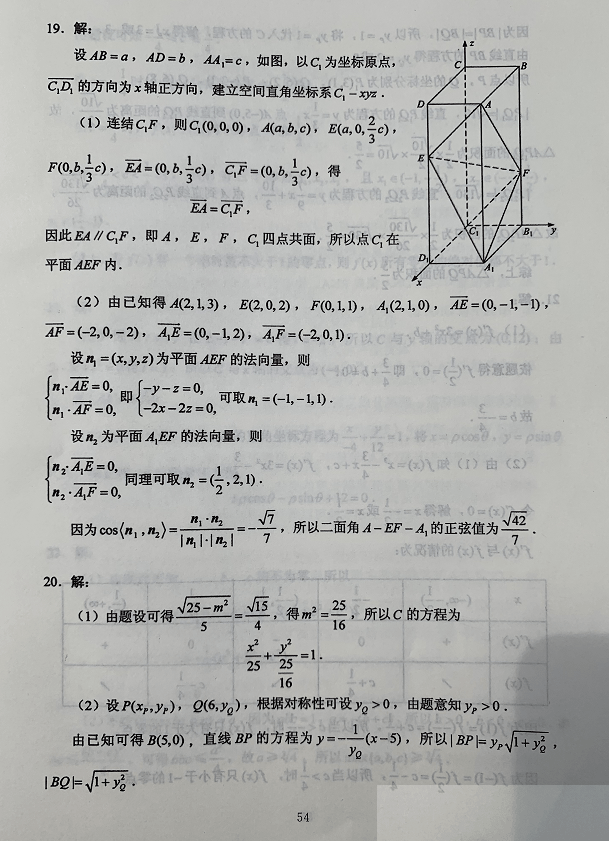 19. 解:
设 AB = a, AD = b, AA₁ = c, 如图, 以 C₁ 为坐标原点,
$\overrightarrow{C_1D_1}$ 的方向为 x 轴正方向, 建立空间直角坐标系 C₁ – xyz.
(1) 连结 C₁F, 则 C₁(0,0,0), A(a,b,c), E(a,0,$\frac{2}{3}$c),
F(0,b,$\frac{1}{3}$c), $\overrightarrow{EA}$ = (0,b,$\frac{1}{3}$c), $\overrightarrow{C_1F}$ = (0,b,$\frac{1}{3}$c), 得
$\overrightarrow{EA}$ = $\overrightarrow{C_1F}$,
因此 EA // C₁F, 即 A, E, F, C₁ 四点共面, 所以点 C₁ 在
平面 AEF 内.
z
C
B
D
A
E
F
C₁
B₁
y
D₁
A₁
x
(2) 由已知得 A(2,1,3), E(2,0,2), F(0,1,1), A₁(2,1,0), $\overrightarrow{AE}$ = (0,−1,−1),
$\overrightarrow{AF}$ = (−2,0,−2), $\overrightarrow{A_1E}$ = (0,−1,2), $\overrightarrow{A_1F}$ = (−2,0,1).
设 n₁ = (x,y,z) 为平面 AEF 的法向量, 则
$\begin{cases} n_1\cdot\overrightarrow{AE}=0, \\ n_1\cdot\overrightarrow{AF}=0, \end{cases}$ 即 $\begin{cases} -y-z=0, \\ -2x-2z=0, \end{cases}$ 可取 n₁ = (−1,−1,1).
设 n₂ 为平面 A₁EF 的法向量, 则
$\begin{cases} n_2\cdot\overrightarrow{A_1E}=0, \\ n_2\cdot\overrightarrow{A_1F}=0, \end{cases}$ 同理可取 n₂ = ($\frac{1}{2}$,2,1).
因为 cos⟨n₁, n₂⟩ = $\frac{n_1\cdot n_2}{|n_1|\cdot|n_2|}$ = −$\frac{\sqrt{7}}{7}$, 所以二面角 A – EF – A₁ 的正弦值为 $\frac{\sqrt{42}}{7}$.
20. 解:
(1) 由题设可得 $\frac{\sqrt{25-m^2}}{5}$ = $\frac{\sqrt{15}}{4}$, 得 m² = $\frac{25}{16}$, 所以 C 的方程为
$\frac{x^2}{25}+\frac{y^2}{\frac{25}{16}}=1$.
(2) 设 P(x_P, y_P), Q(6, y_Q), 根据对称性可设 y_Q > 0, 由题意知 y_P > 0.
由已知可得 B(5,0), 直线 BP 的方程为 y = −$\frac{1}{y_Q}$(x−5), 所以 |BP| = y_P$\sqrt{1+y_Q^2}$,
|BQ| = $\sqrt{1+y_Q^2}$.
54